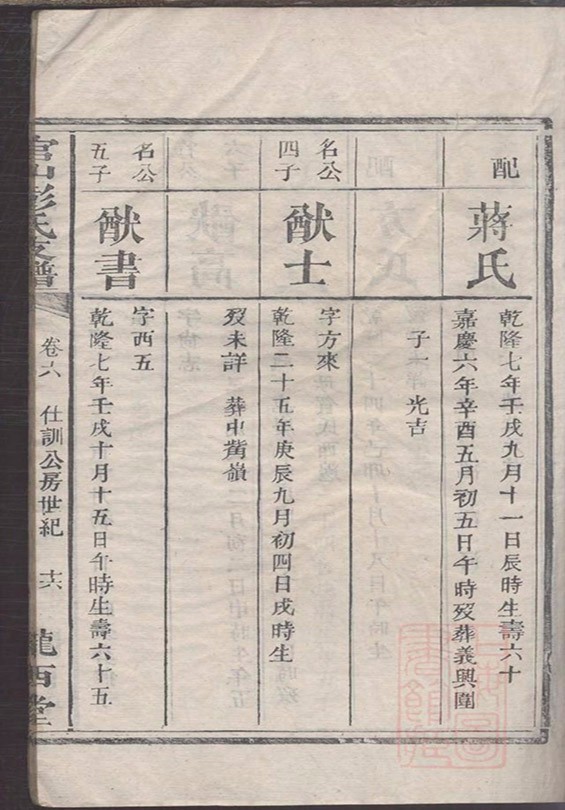 配
蔣氏
乾隆七年壬戌九月十一日辰時生壽六十
嘉慶六年辛酉五月初五日午時歿葬義興圍
子一 光吉
名公
四子
猷士
字方來
乾隆二十五年庚辰九月初四日戌時生
歿未詳 葬中嶺
名公
五子
猷書
字西五
乾隆七年壬戌十月十五日午時生壽六十五
官山彭氏支譜
卷六 仕訓公房世紀 十六
隴西堂